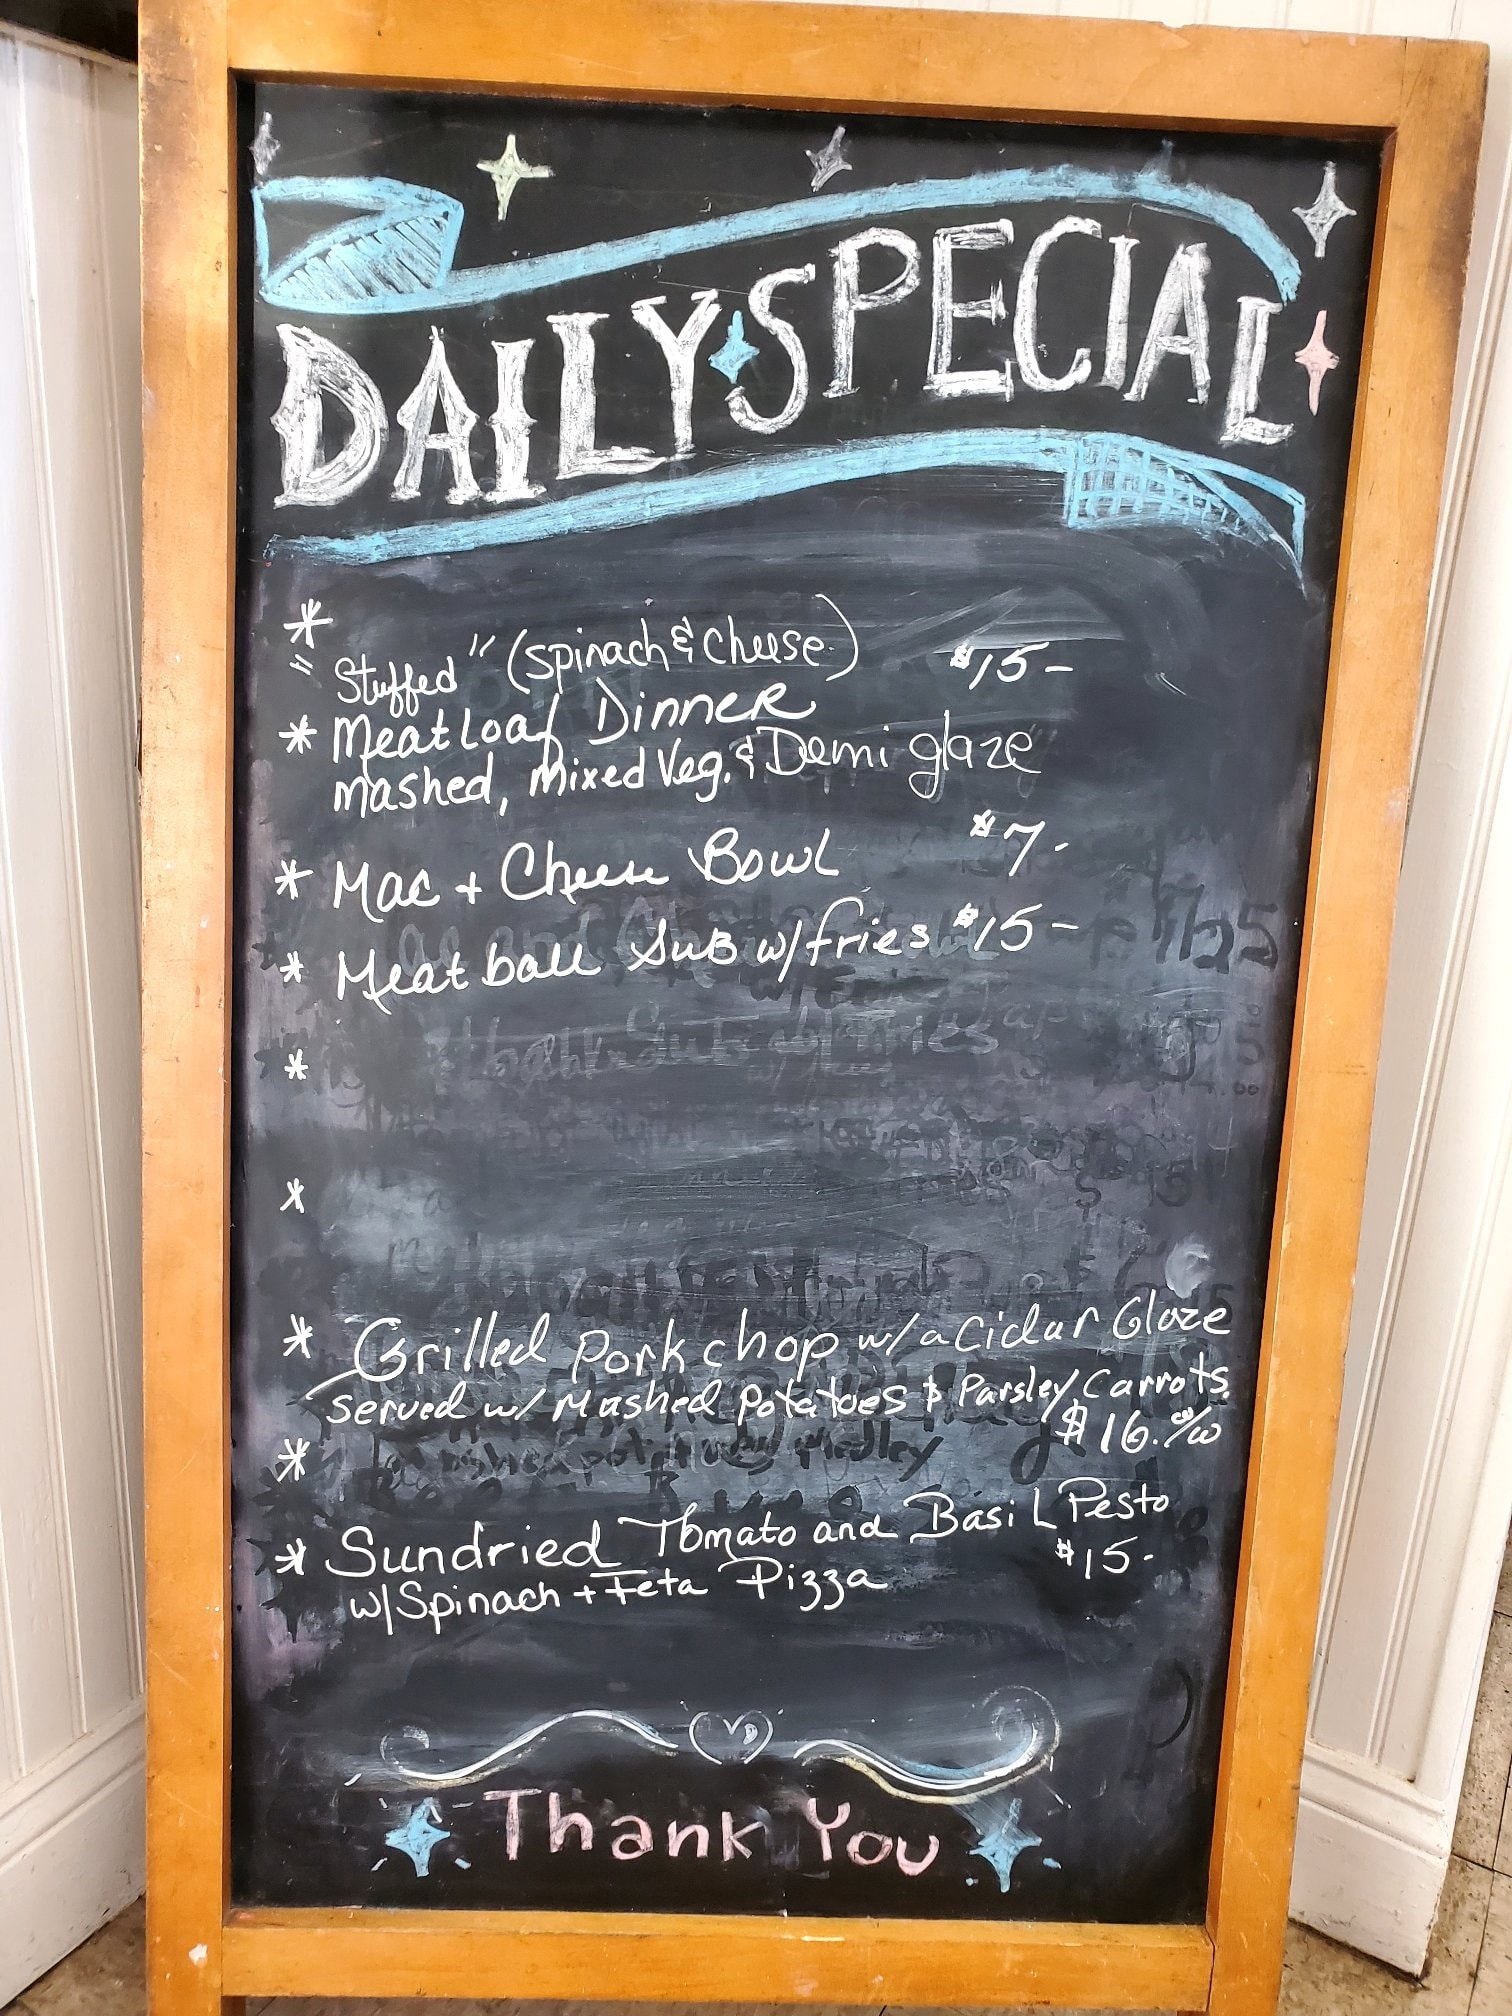 DAILY SPECIAL
*
"Stuffed" (spinach & cheese) $15-
* Meatloaf Dinner
mashed, mixed Veg. & Demi glaze
* Mac + Cheese Bowl $7-
* Meatball Sub w/fries $15-
*
*
* Grilled Pork chop w/a Cidar Glaze
Served w/ Mashed Potatoes & Parsley Carrots.
* $16.
* Sundried Tomato and Basil Pesto
w/Spinach + Feta Pizza $15-
Thank You